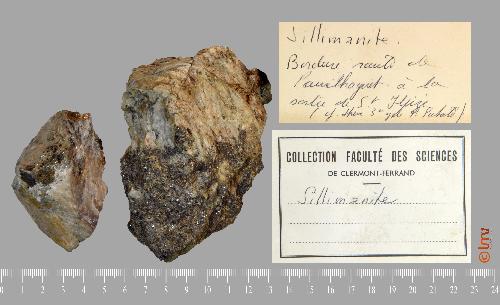 Sillimanite.
Bordure route de
à la
sortie de St Ilpize
COLLECTION FACULTÉ DES SCIENCES
DE CLERMONT-FERRAND
Sillimanite
© lmv
0 1 2 3 4 5 6 7 8 9 10 11 12 13 14 15 16 17 18 19 20 21 22 23 24